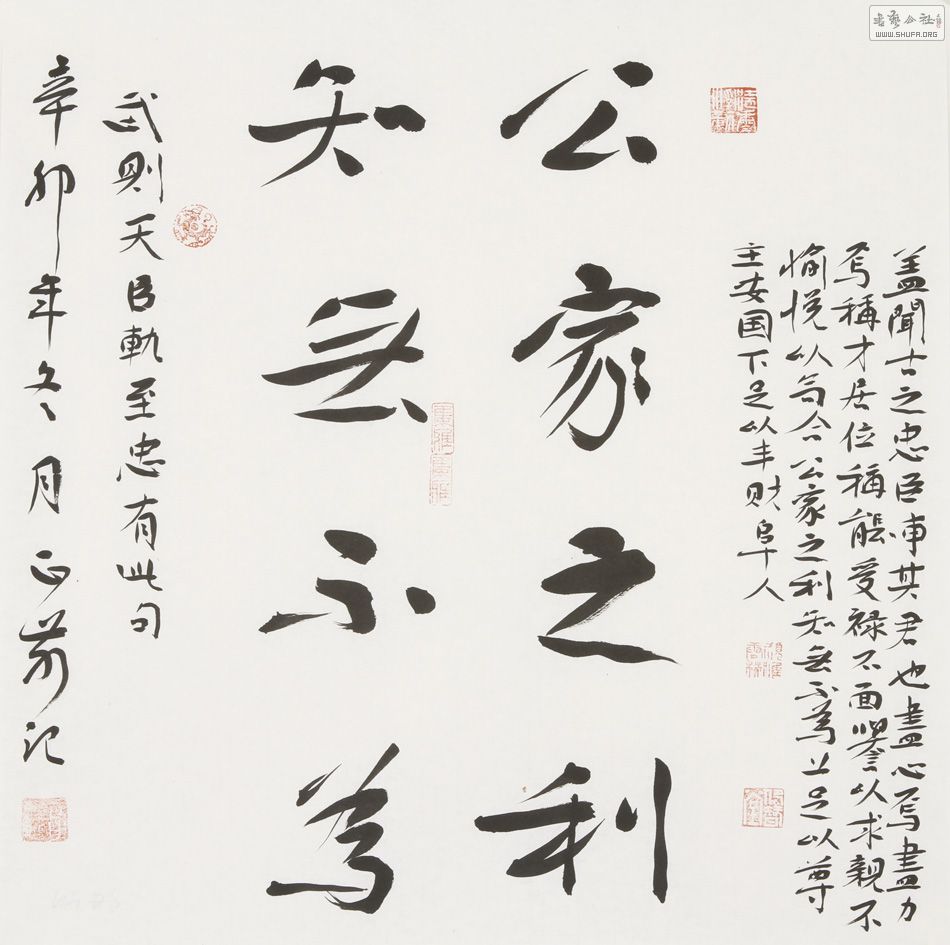 盖聞古之忠臣事其君也盡心焉盡力
焉稱才居位稱能受禄不面譽以求親不
愉悦以苟合公家之利知無不為上足以尊
主安国下足以丰財阜人
公家之利
知無不為
武则天臣軌至忠有此句
辛卯年冬月正记
書藝公社
WWW.SHUFA.ORG